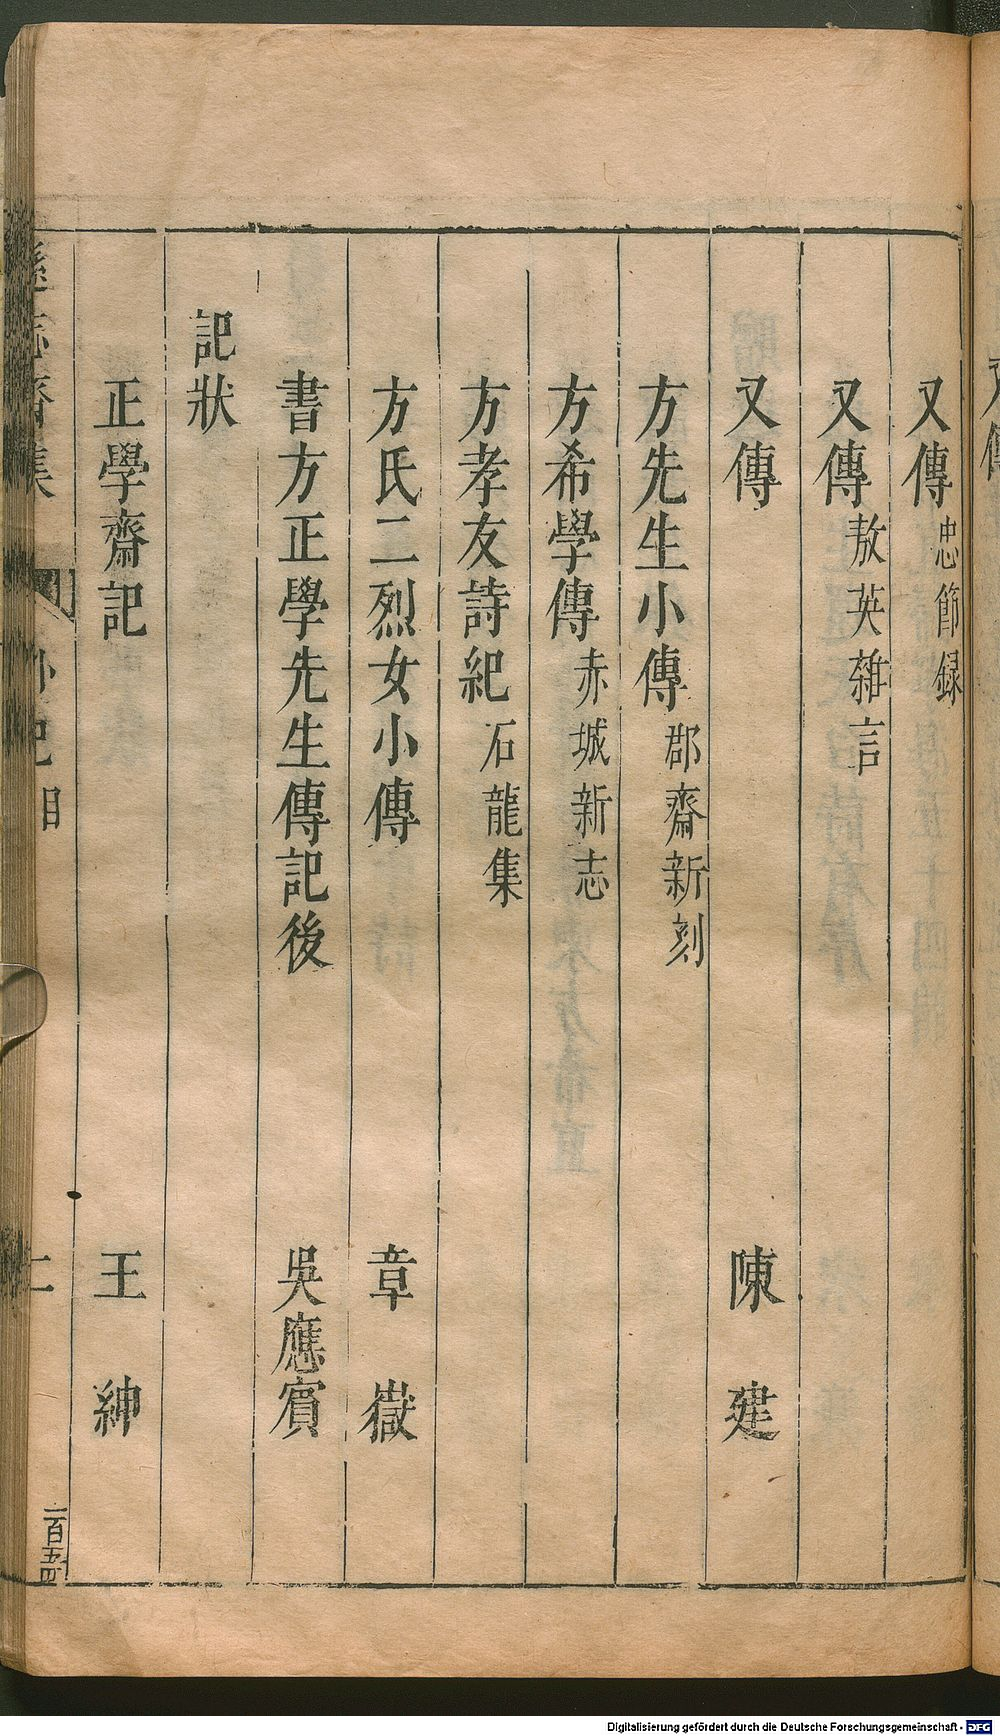 又傳忠節録
又傳敖英雜言
又傳 陳建
方先生小傳郡齋新刻
方希學傳赤城新志
方孝友詩紀石龍集
方氏二烈女小傳 章嶽
書方正學先生傳記後 吳應賓
記狀
正學齋記 王紳
遜志齋集 外紀目 二 一百五四
Digitalisierung gefördert durch die Deutsche Forschungsgemeinschaft - DFG